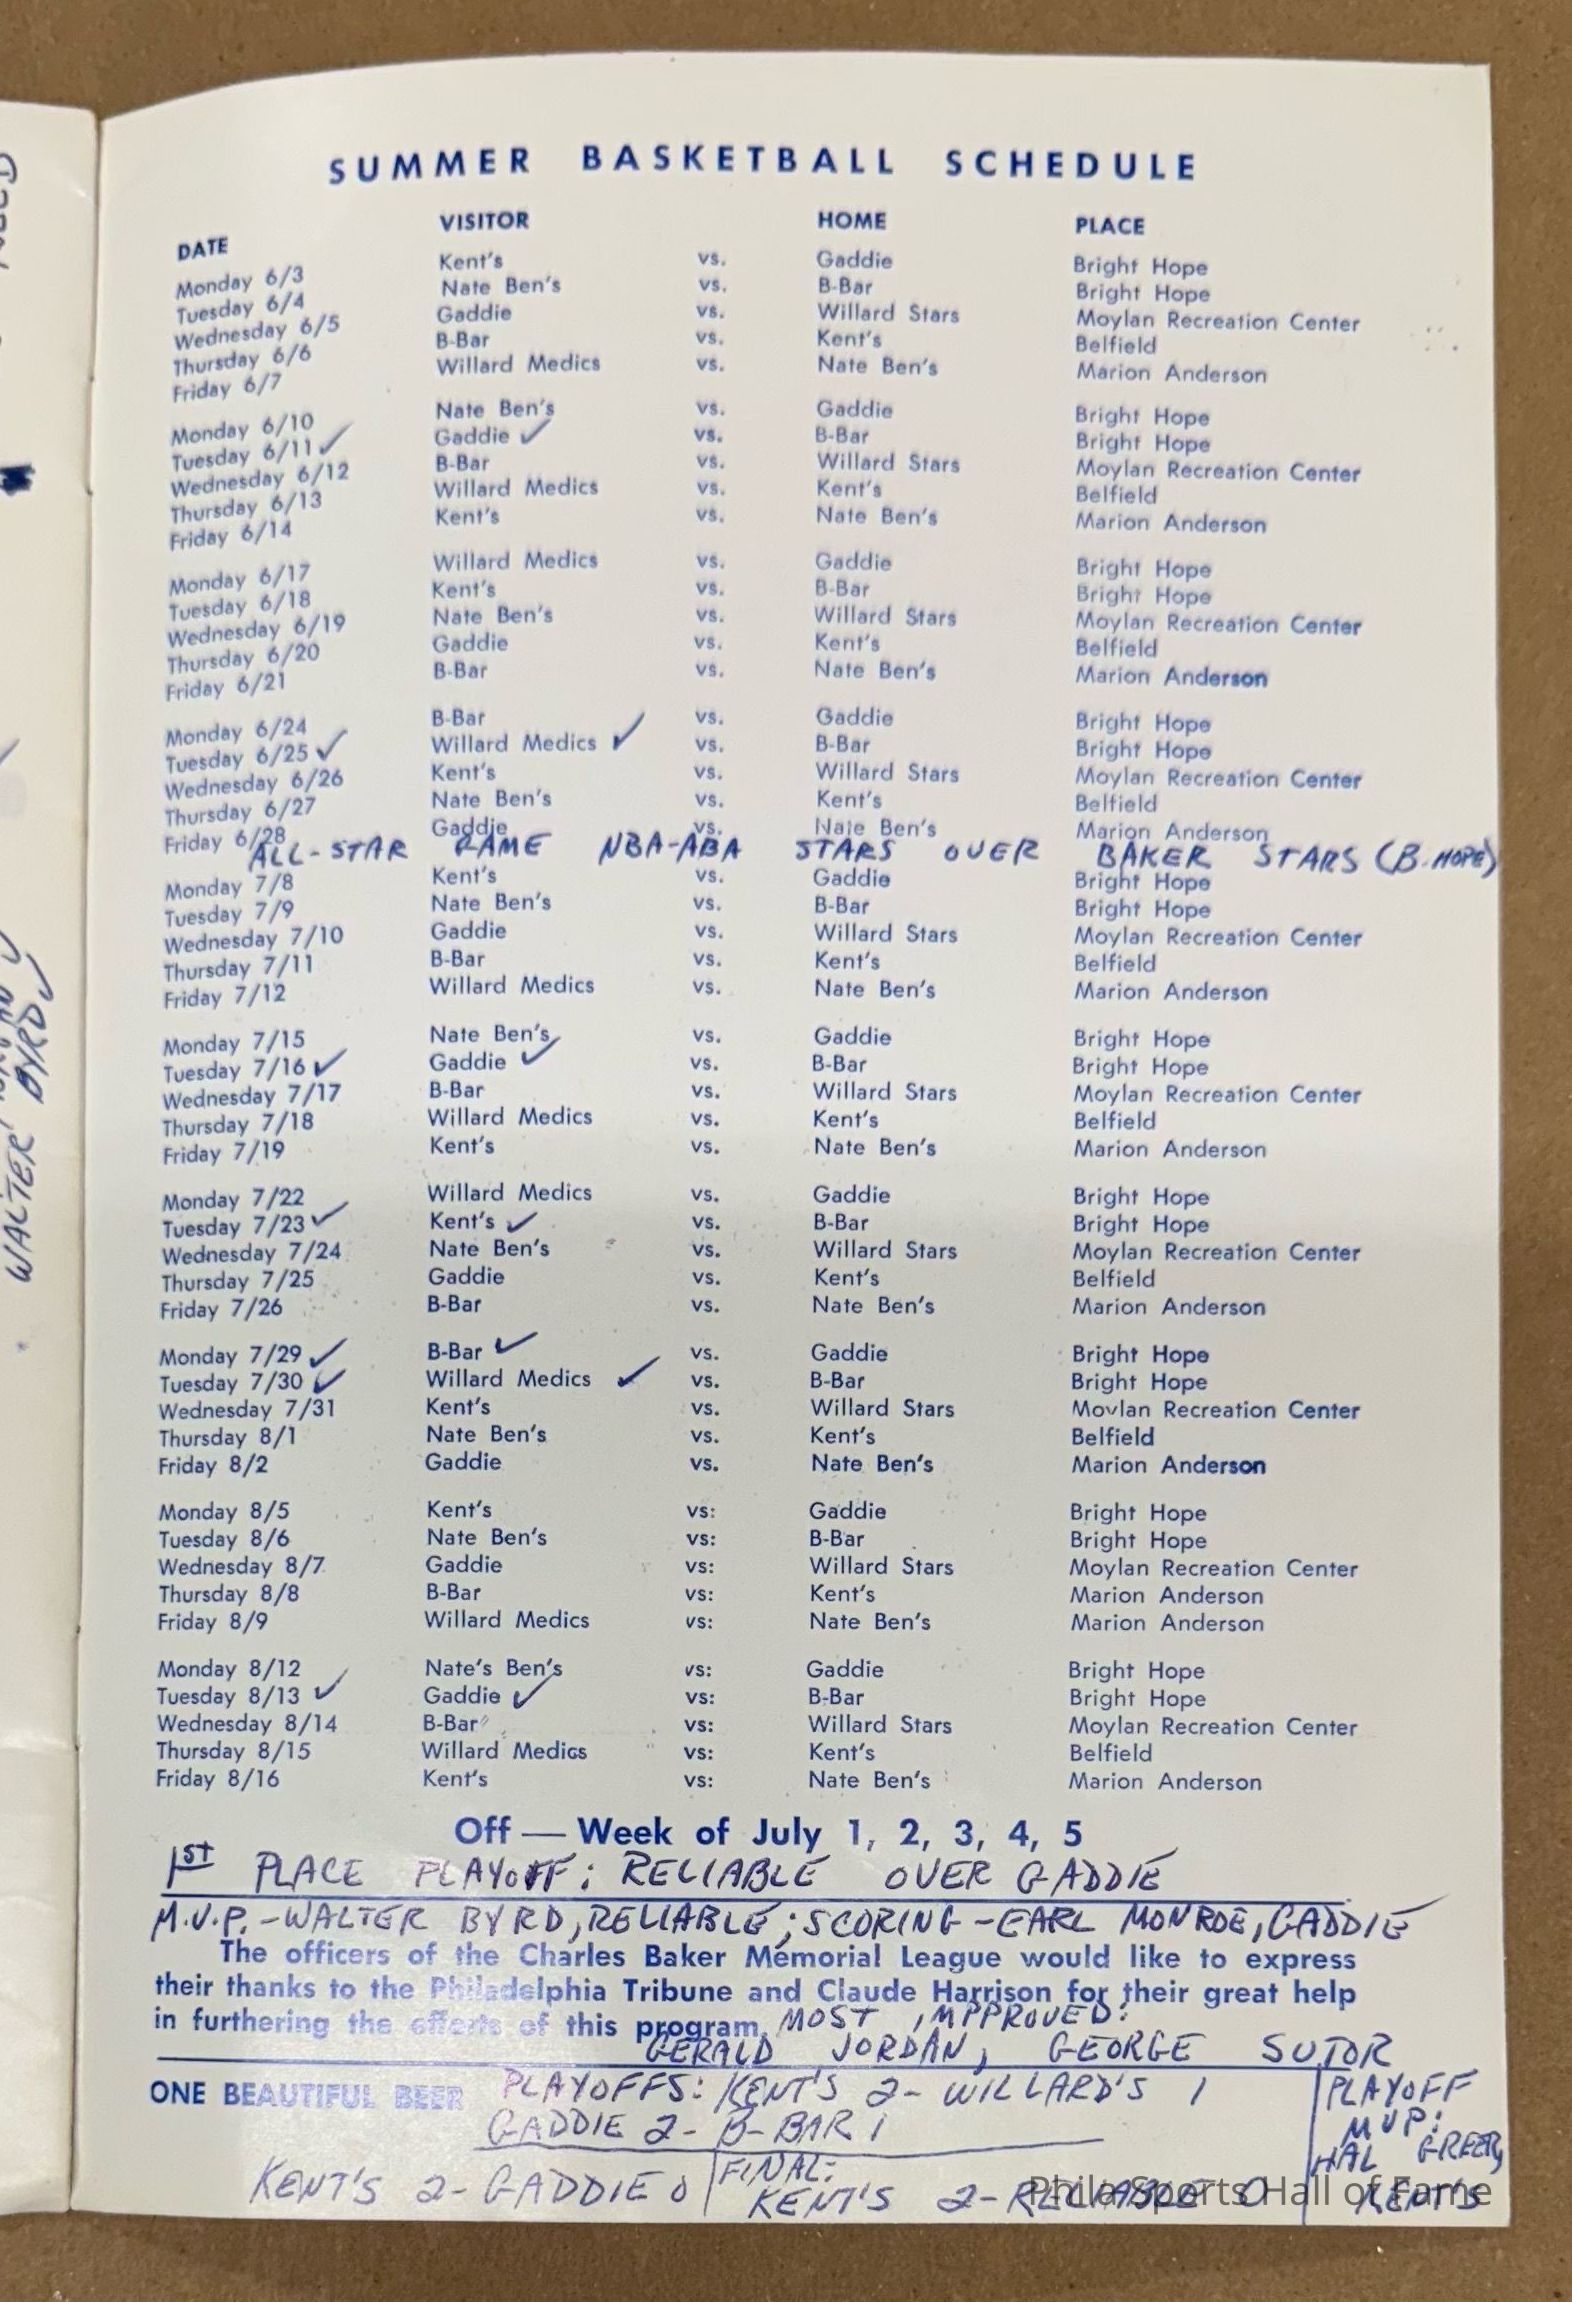 SUMMER BASKETBALL SCHEDULE
DATE VISITOR HOME PLACE
Monday 6/3 Kent's vs. Gaddie Bright Hope
Tuesday 6/4 Nate Ben's vs. B-Bar Bright Hope
Wednesday 6/5 Gaddie vs. Willard Stars Moylan Recreation Center
Thursday 6/6 B-Bar vs. Kent's Belfield
Friday 6/7 Willard Medics vs. Nate Ben's Marion Anderson
Monday 6/10 Nate Ben's vs. Gaddie Bright Hope
Tuesday 6/11 ✓ Gaddie ✓ vs. B-Bar Bright Hope
Wednesday 6/12 B-Bar vs. Willard Stars Moylan Recreation Center
Thursday 6/13 Willard Medics vs. Kent's Belfield
Friday 6/14 Kent's vs. Nate Ben's Marion Anderson
Monday 6/17 Willard Medics vs. Gaddie Bright Hope
Tuesday 6/18 Kent's vs. B-Bar Bright Hope
Wednesday 6/19 Nate Ben's vs. Willard Stars Moylan Recreation Center
Thursday 6/20 Gaddie vs. Kent's Belfield
Friday 6/21 B-Bar vs. Nate Ben's Marion Anderson
Monday 6/24 B-Bar vs. Gaddie Bright Hope
Tuesday 6/25 ✓ Willard Medics ✓ vs. B-Bar Bright Hope
Wednesday 6/26 Kent's vs. Willard Stars Moylan Recreation Center
Thursday 6/27 Nate Ben's vs. Kent's Belfield
Friday 6/28 Gaddie vs. Nate Ben's Marion Anderson
ALL-STAR GAME NBA-ABA STARS OVER BAKER STARS (B. HOPE)
Monday 7/8 Kent's vs. Gaddie Bright Hope
Tuesday 7/9 Nate Ben's vs. B-Bar Bright Hope
Wednesday 7/10 Gaddie vs. Willard Stars Moylan Recreation Center
Thursday 7/11 B-Bar vs. Kent's Belfield
Friday 7/12 Willard Medics vs. Nate Ben's Marion Anderson
Monday 7/15 Nate Ben's vs. Gaddie Bright Hope
Tuesday 7/16 ✓ Gaddie ✓ vs. B-Bar Bright Hope
Wednesday 7/17 B-Bar vs. Willard Stars Moylan Recreation Center
Thursday 7/18 Willard Medics vs. Kent's Belfield
Friday 7/19 Kent's vs. Nate Ben's Marion Anderson
Monday 7/22 Willard Medics vs. Gaddie Bright Hope
Tuesday 7/23 ✓ Kent's ✓ vs. B-Bar Bright Hope
Wednesday 7/24 Nate Ben's vs. Willard Stars Moylan Recreation Center
Thursday 7/25 Gaddie vs. Kent's Belfield
Friday 7/26 B-Bar vs. Nate Ben's Marion Anderson
Monday 7/29 ✓ B-Bar ✓ vs. Gaddie Bright Hope
Tuesday 7/30 ✓ Willard Medics ✓ vs. B-Bar Bright Hope
Wednesday 7/31 Kent's vs. Willard Stars Moylan Recreation Center
Thursday 8/1 Nate Ben's vs. Kent's Belfield
Friday 8/2 Gaddie vs. Nate Ben's Marion Anderson
Monday 8/5 Kent's vs: Gaddie Bright Hope
Tuesday 8/6 Nate Ben's vs: B-Bar Bright Hope
Wednesday 8/7 Gaddie vs: Willard Stars Moylan Recreation Center
Thursday 8/8 B-Bar vs: Kent's Marion Anderson
Friday 8/9 Willard Medics vs: Nate Ben's Marion Anderson
Monday 8/12 Nate's Ben's vs: Gaddie Bright Hope
Tuesday 8/13 ✓ Gaddie ✓ vs: B-Bar Bright Hope
Wednesday 8/14 B-Bar vs: Willard Stars Moylan Recreation Center
Thursday 8/15 Willard Medics vs: Kent's Belfield
Friday 8/16 Kent's vs: Nate Ben's Marion Anderson
Off — Week of July 1, 2, 3, 4, 5
1ST PLACE PLAYOFF: RELIABLE OVER GADDIE
M.V.P.-WALTER BYRD, RELIABLE; SCORING-EARL MONROE, GADDIE
The officers of the Charles Baker Memorial League would like to express
their thanks to the Philadelphia Tribune and Claude Harrison for their great help
in furthering the efforts of this program.
MOST IMPPROVED:
GERALD JORDAN, GEORGE SUTOR
ONE BEAUTIFUL BEER
PLAYOFFS: KENT'S 2- WILLARD'S 1
GADDIE 2- B-BAR 1
KENT'S 2-GADDIE 0
FINAL:
KENT'S 2-RELIABLE 0
PLAYOFF
MVP:
HAL GREER,
KENT'S
Phila Sports Hall of Fame
WALTER BYRD ✓